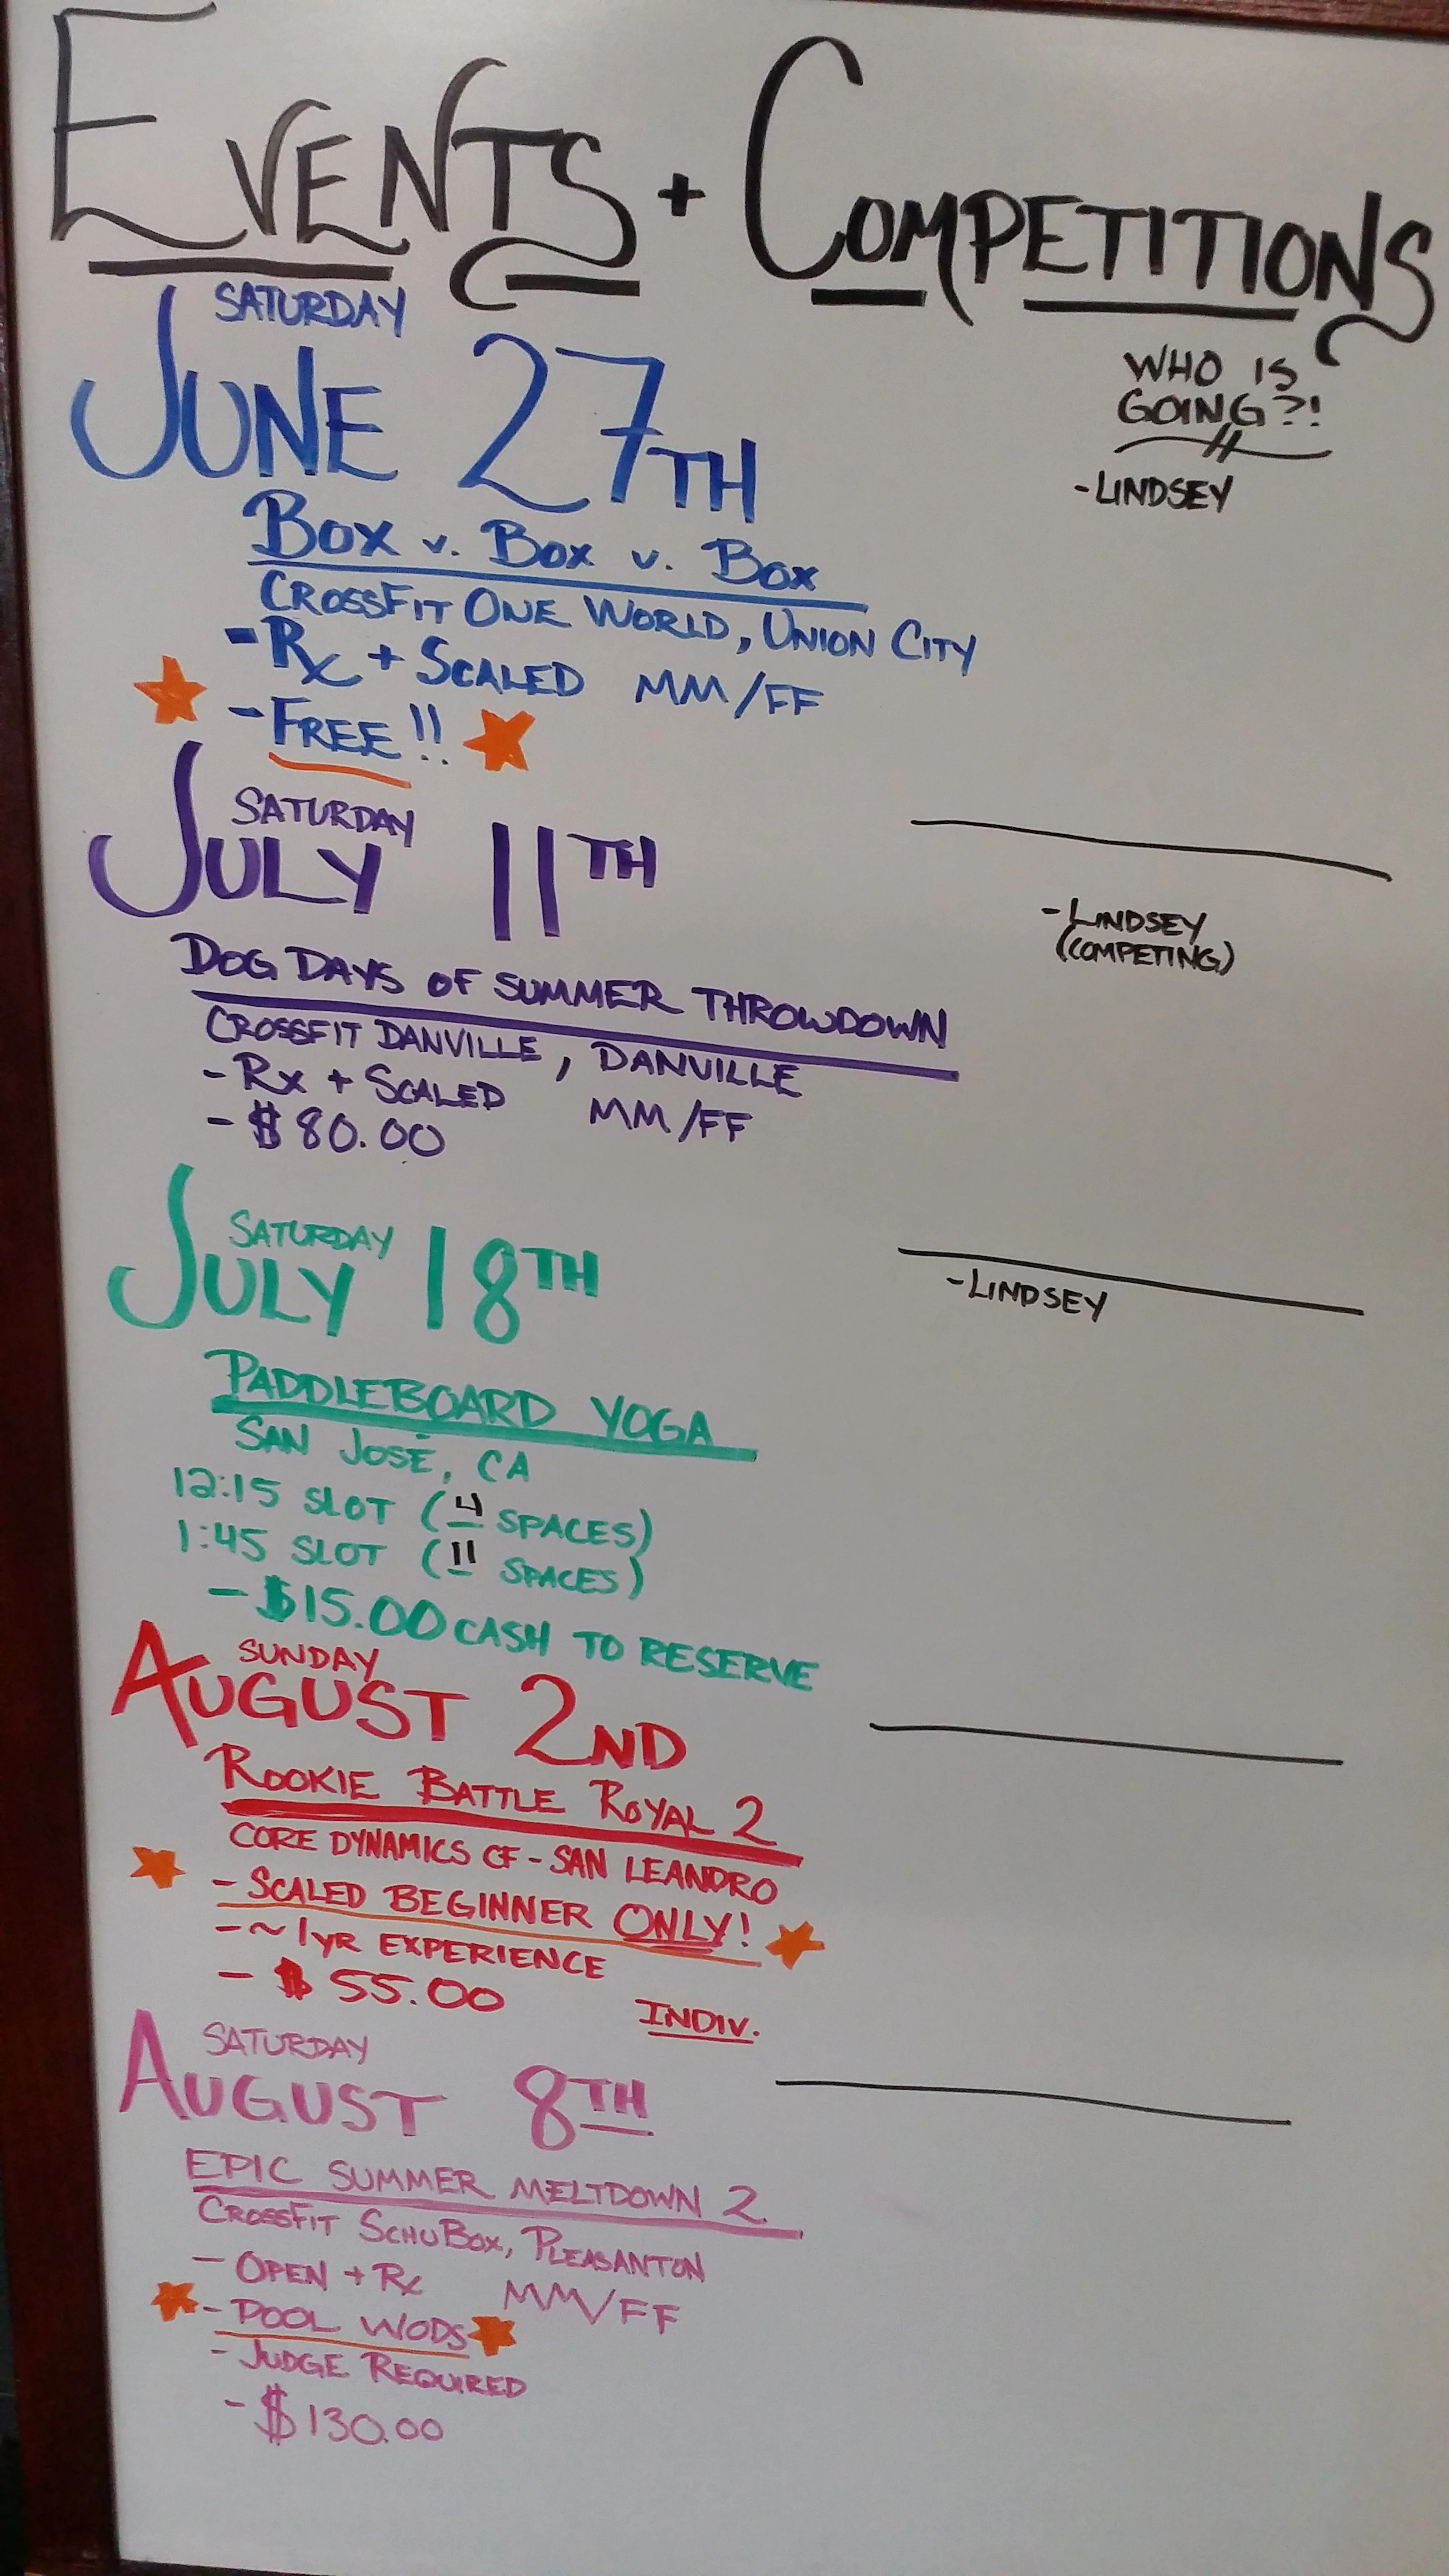 EVENTS + COMPETITIONS
SATURDAY
JUNE 27TH
WHO IS
GOING?!
-LINDSEY
BOX v. BOX v. BOX
CROSSFIT ONE WORLD, UNION CITY
-Rx + SCALED MM/FF
-FREE!!
SATURDAY
JULY 11TH
-LINDSEY
(COMPETING)
DOG DAYS OF SUMMER THROWDOWN
CROSSFIT DANVILLE, DANVILLE
-Rx + SCALED MM/FF
-$80.00
SATURDAY
JULY 18TH
-LINDSEY
PADDLEBOARD YOGA
SAN JOSÉ, CA
12:15 SLOT (4 SPACES)
1:45 SLOT (11 SPACES)
-$15.00 CASH TO RESERVE
SUNDAY
AUGUST 2ND
ROOKIE BATTLE ROYAL 2
CORE DYNAMICS CF - SAN LEANDRO
-SCALED BEGINNER ONLY!
-~1YR EXPERIENCE
-$55.00 INDIV.
SATURDAY
AUGUST 8TH
EPIC SUMMER MELTDOWN 2
CROSSFIT SCHUBOX, PLEASANTON
-OPEN + Rx MM/FF
-POOL WODS
-JUDGE REQUIRED
-$130.00